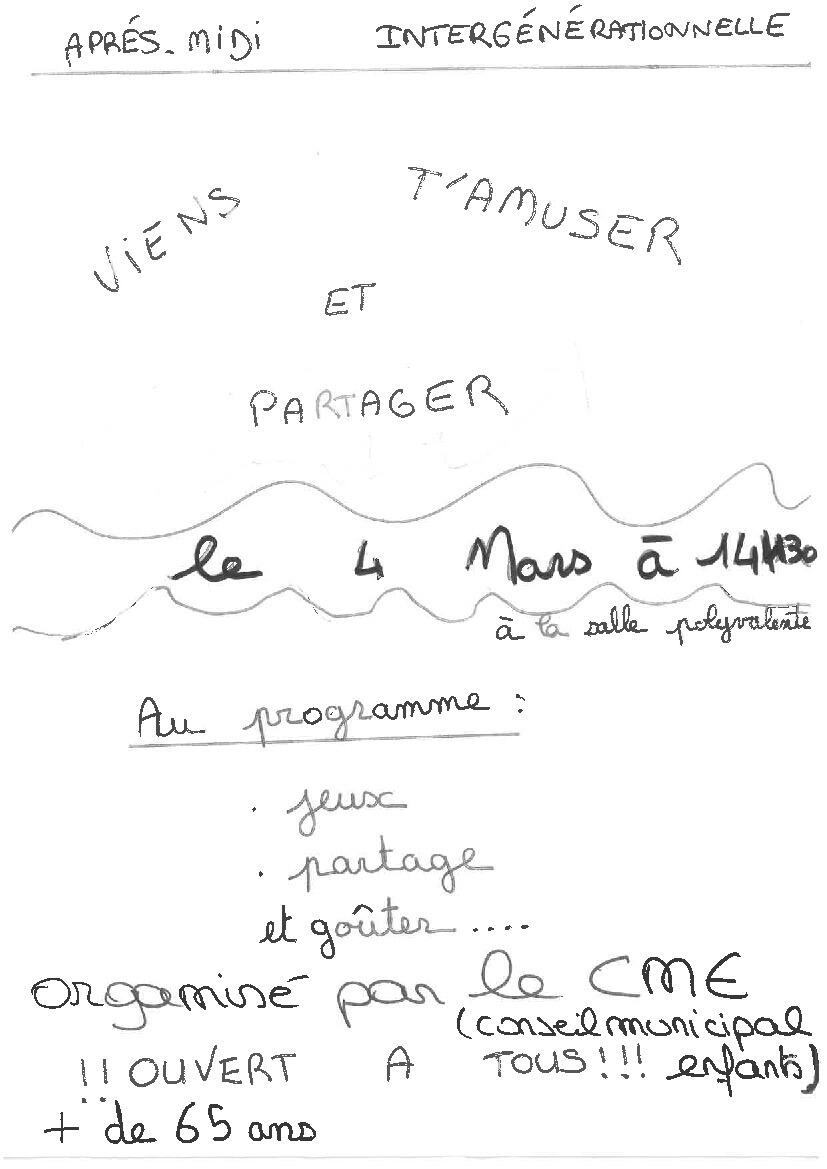 APRÉS-MIDI INTERGÉNÉRATIONNELLE
VIENS T'AMUSER
ET
PARTAGER
le 4 Mars à 14H30
à la salle polyvalente
Au programme :
. jeux
. partage
et goûter ....
organisé par le CME
(conseil municipal
!! OUVERT A TOUS!!! enfants)
+ de 65 ans